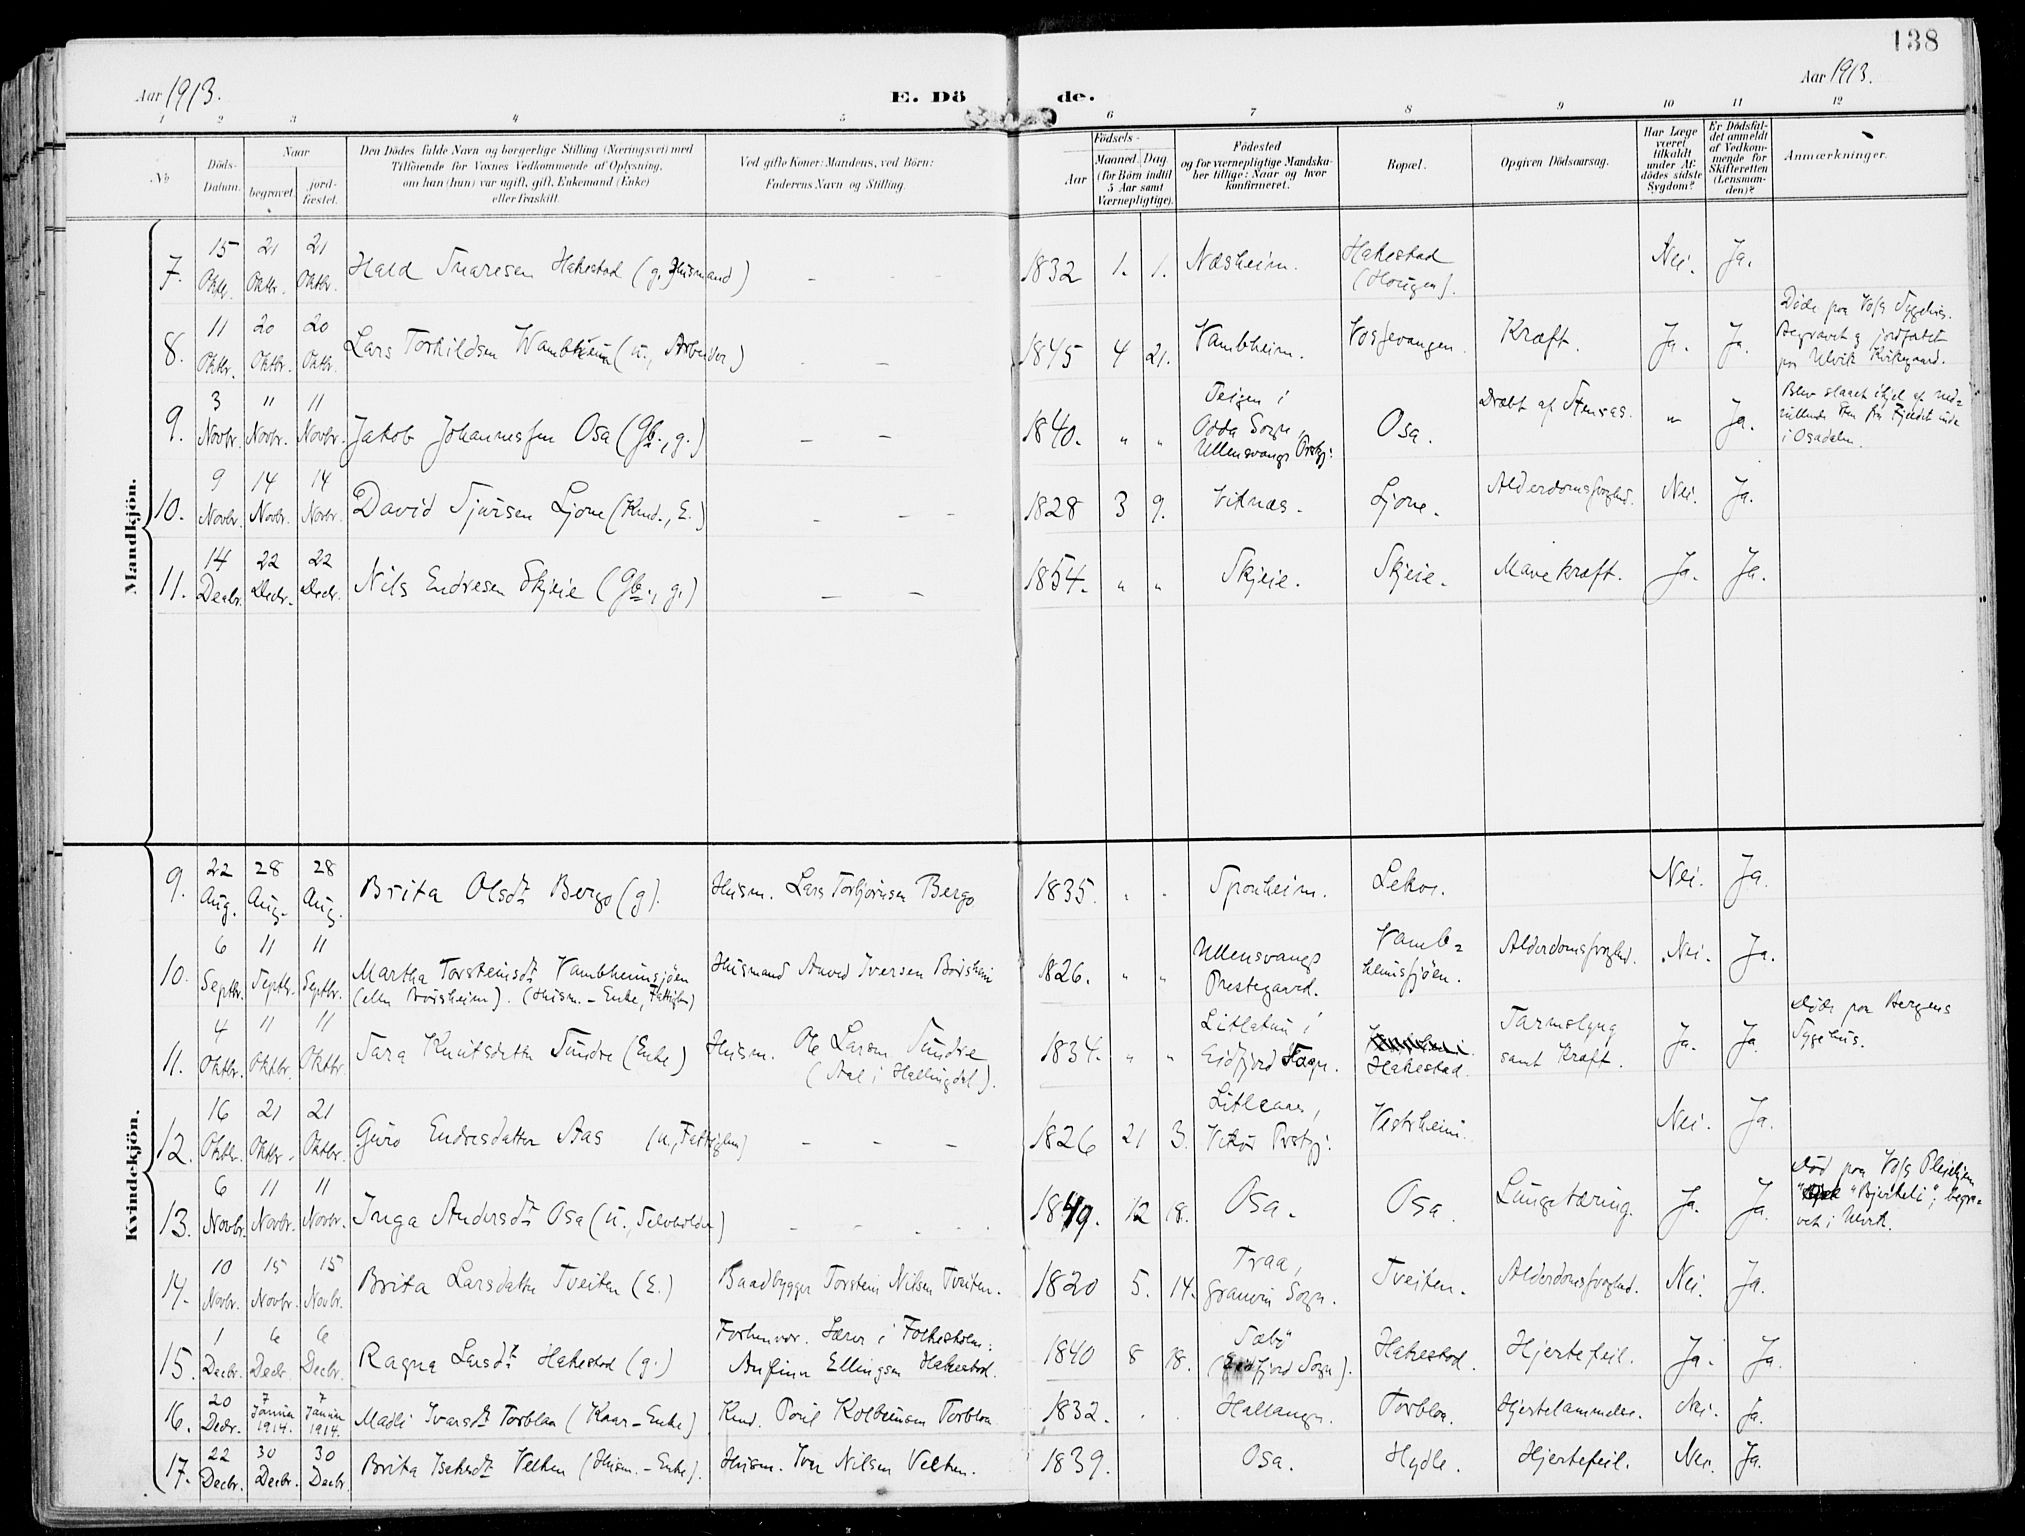 138
Aar 1913.
E. Dö de.
Aar 1913.
1 2 3 4 5 6 7 8 9 10 11 12
No
Döds-Datum.
Naar
begravet
jord-fæstet.
Den Dödes fulde Navn og borgerlige Stilling (Næringsvei) med
Tilföiende for Voxnes Vedkommende af Oplysning,
om han (hun) var ugift, gift, Enkemand (Enke)
eller fraskilt.
Ved gifte Koner: Mandens, ved Börn:
Faderens Navn og Stilling.
Födsels-
Aar
Maaned. Dag
(for Börn indtil
5 Aar samt
Værnepligtige).
Födested
og for værnepligtige Mandska-
ber tillige: Naar og hvor
konfirmeret.
Bopæl.
Opgiven Dödsaarsag.
Har Læge
været
tilkaldt
under Af-
dödes sidste
Sygdom?
Er Dödsfal-
det anmeldt
af Vedkom-
mende for
Skifteretten
(Lensman-
den)?
Anmærkninger.
Mandkjön.
7. 15 Oktbr. 21 Oktbr. 21 Oktbr. Hald Hakestad (g. Husmand) – – – 1832 1. 1. Næsheim. Hakestad (Hougen). Nei. Ja.
8. 11 Oktbr. 20 Oktbr. 20 Oktbr. Lars Torkildsen Wambheim (u., Arbeider) – – 1845 4 21. Vambheim. Vossevangen. Kræft. Ja. Ja. Døde paa Voss Sygehus. Begravet og jordfæstet paa Ulvik Kirkegaard.
9. 3 Novbr. 11 Novbr. 11 Novbr. Jakob Johannessen Osa (Gb., g.) – – 1840. " " Teigen i Odda Sogn, Ullensvangs Prstgj: Osa. Dræbt af Stenras. " Ja. Blev slaaet ihjel af ned= rullende Sten fra Fjeldet inde i Osadalen.
10. 9 Novbr. 14 Novbr. 14 Novbr. David Sjursen Ljone (Kmd., E.) – – – 1828 3 9. Viknæs. Ljone. Alderdomssvaghed. Nei. Ja.
11. 14 Decbr. 22 Decbr. 22 Decbr. Nils Endresen Skjeie (Gb., g.) – – 1854. " " Skjeie. Skjeie. Mavekræft. Ja. Ja.
Kvindekjön.
9. 22 Aug. 28 Aug. 28 Aug. Brita Olsdt Bergo (g). Husm. Lars Torbjørnsen Bergo 1835. " " Sponheim. Lekve. Nei. Ja.
10. 6 Septbr. 11 Septbr. 11 Septbr. Martha Torsteinsdt. Vambheimsjøen (eller Børsheim). (Husm.-Enke, Fattiglem) Husmand Amund Iversen Børsheim 1826. " " Ullensvangs Prestegaard. Vamb= heimsjøen. Alderdomssvaghed. Nei. Ja.
11. 4 Oktbr. 11 Oktbr. 11 Oktbr. Sara Knutsdatter Tundre (Enke) Husm. Ole Larsen Tundre (Aal i Hallingdal). 1834. " " Litlatun i Eidfjord Sogn. Hakestad. Tarmslyng samt Kræft. Ja. Ja. Døde paa Bergens Sygehus.
12. 16 Oktbr. 21 Oktbr. 21 Oktbr. Guro Endresdatter Aas (u., Fattiglem) – – – 1826 21 3. Litleaas, Vikør Prstgj: Vestrheim. Nei. Ja.
13. 6 Novbr. 11 Novbr. 11 Novbr. Inga Andersdt. Osa (u., Selvholder) 1849. 12 18. Osa. Osa. Lungetæring. Ja. Ja. Død paa Voss Pleiehjem "Bjerkeli"; begra= vet i Ulvik.
14. 10 Novbr. 15 Novbr. 15 Novbr. Brita Larsdatter Tveiten (E.) Baadbygger Torstein Nilsen Tveiten. 1820 5. 14. Traa, Granvin Sogn. Tveiten. Alderdomssvaghed. Nei. Ja.
15. 1 Decbr. 6 Decbr. 6 Decbr. Ragna Larsdt. Hakestad (g.) Forhenvær. Lærer i Folkeskolen: Anfinn Ellingsen Hakestad. 1840 8 18. Sæbø (Eidfjord Sogn). Hakestad. Hjertefeil. Ja. Ja.
16. 20 Decbr. 7 Januar 1914. 7 Januar 1914. Madli Ivarsdt. Torblaa (Kaar-Enke) Kmd. Poul Kolbeinsen Torblaa 1832. . . Hallanger. Torbloa. Hjertelammelse. Nei. Ja.
17. 22 Decbr. 30 Decbr. 30 Decbr. Brita Isaksdt. Velken (Husm.-Enke). Husm. Iver Nilsen Velken. 1839. Osa. Hydle. Hjertefeil. Nei. Ja.